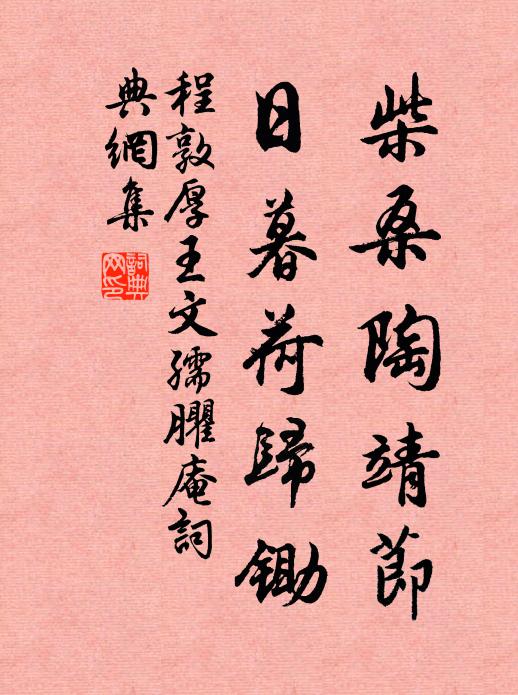 柴桑陶靖節
日暮荷歸鋤
程敦厚王文孺臞庵詞
典網集
詞典網印